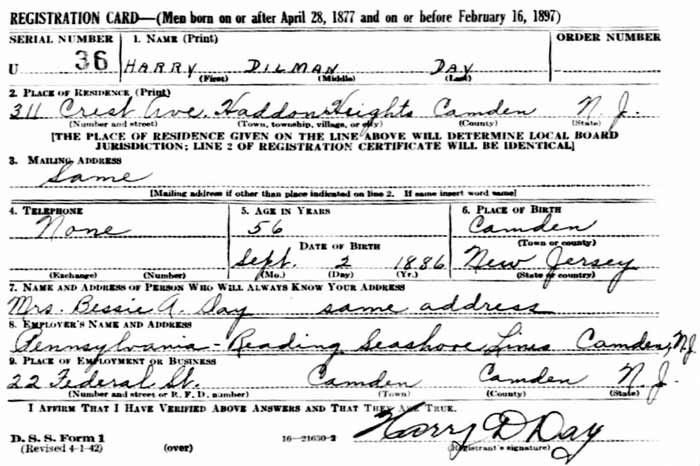 REGISTRATION CARD—(Men born on or after April 28, 1877 and on or before February 16, 1897)
SERIAL NUMBER 1. NAME (Print) ORDER NUMBER
U 36 HARRY DILMAN DAY
(First) (Middle) (Last)
2. PLACE OF RESIDENCE (Print)
311 Crest Ave. Haddon Heights Camden N.J.
(Number and street) (Town, township, village, or city) (County) (State)
[THE PLACE OF RESIDENCE GIVEN ON THE LINE ABOVE WILL DETERMINE LOCAL BOARD
JURISDICTION; LINE 2 OF REGISTRATION CERTIFICATE WILL BE IDENTICAL]
3. MAILING ADDRESS
Same
[Mailing address if other than place indicated on line 2. If same insert word same]
4. TELEPHONE 5. AGE IN YEARS 6. PLACE OF BIRTH
None 56 Camden
DATE OF BIRTH (Town or county)
Sept. 2 1886 New Jersey
(Exchange) (Number) (Mo.) (Day) (Yr.) (State or country)
7. NAME AND ADDRESS OF PERSON WHO WILL ALWAYS KNOW YOUR ADDRESS
Mrs. Bessie A. Day same address
8. EMPLOYER'S NAME AND ADDRESS
Pennsylvania-Reading Seashore Lines Camden, NJ
9. PLACE OF EMPLOYMENT OR BUSINESS
22 Federal St. Camden Camden N.J.
(Number and street or R. F. D. number) (Town) (County) (State)
I AFFIRM THAT I HAVE VERIFIED ABOVE ANSWERS AND THAT THEY ARE TRUE.
D. S. S. Form 1 Harry D Day
(Revised 4-1-42) (over) 16—21630-2 (Registrant's signature)